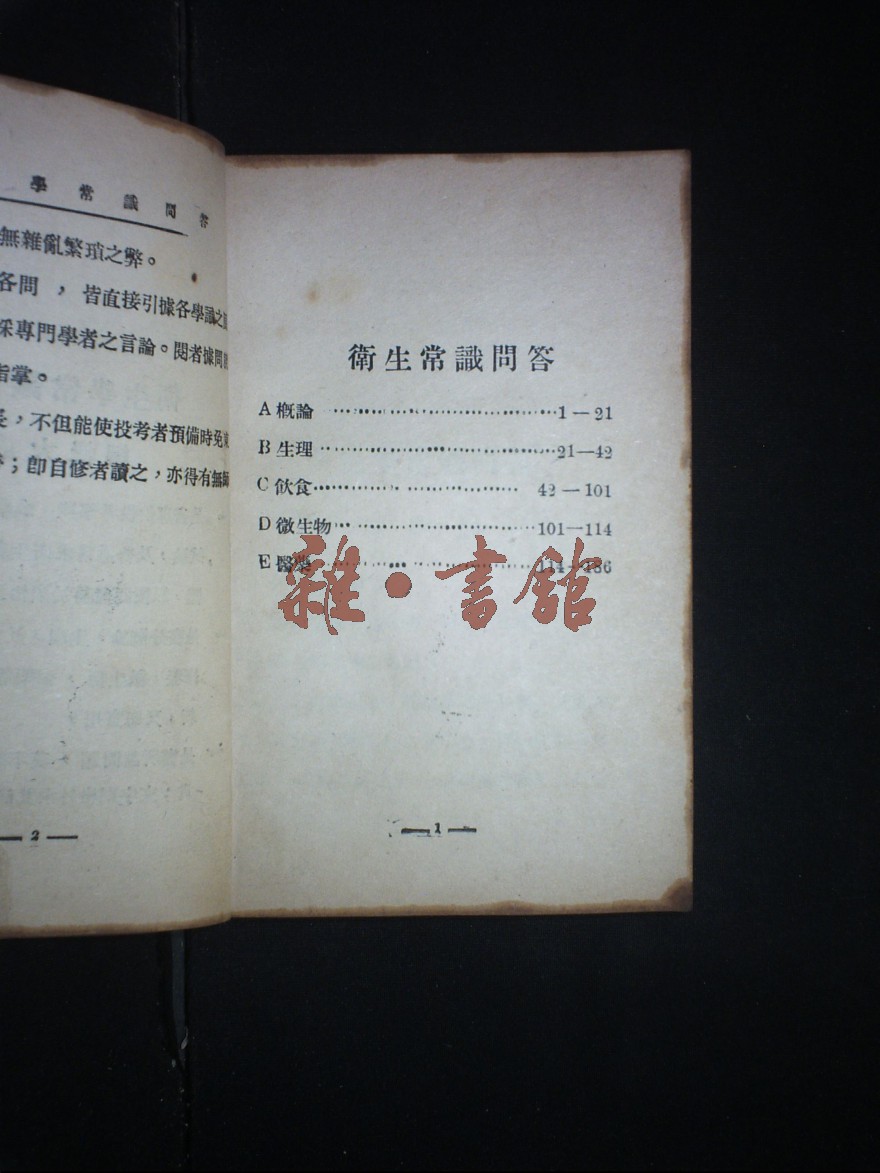 學常識問答
無雜亂繁瑣之弊。
各問，皆直接引據各學識之
採專門學者之言論。閱者據問
指掌。
長，不但能使投考者預備時免
；卽自修者讀之，亦得有無師
2
衛生常識問答
A 概論 1—21
B 生理 21—42
C 飲食 42—101
D 微生物 101—114
E 醫藥 114—186
雜·書館
1